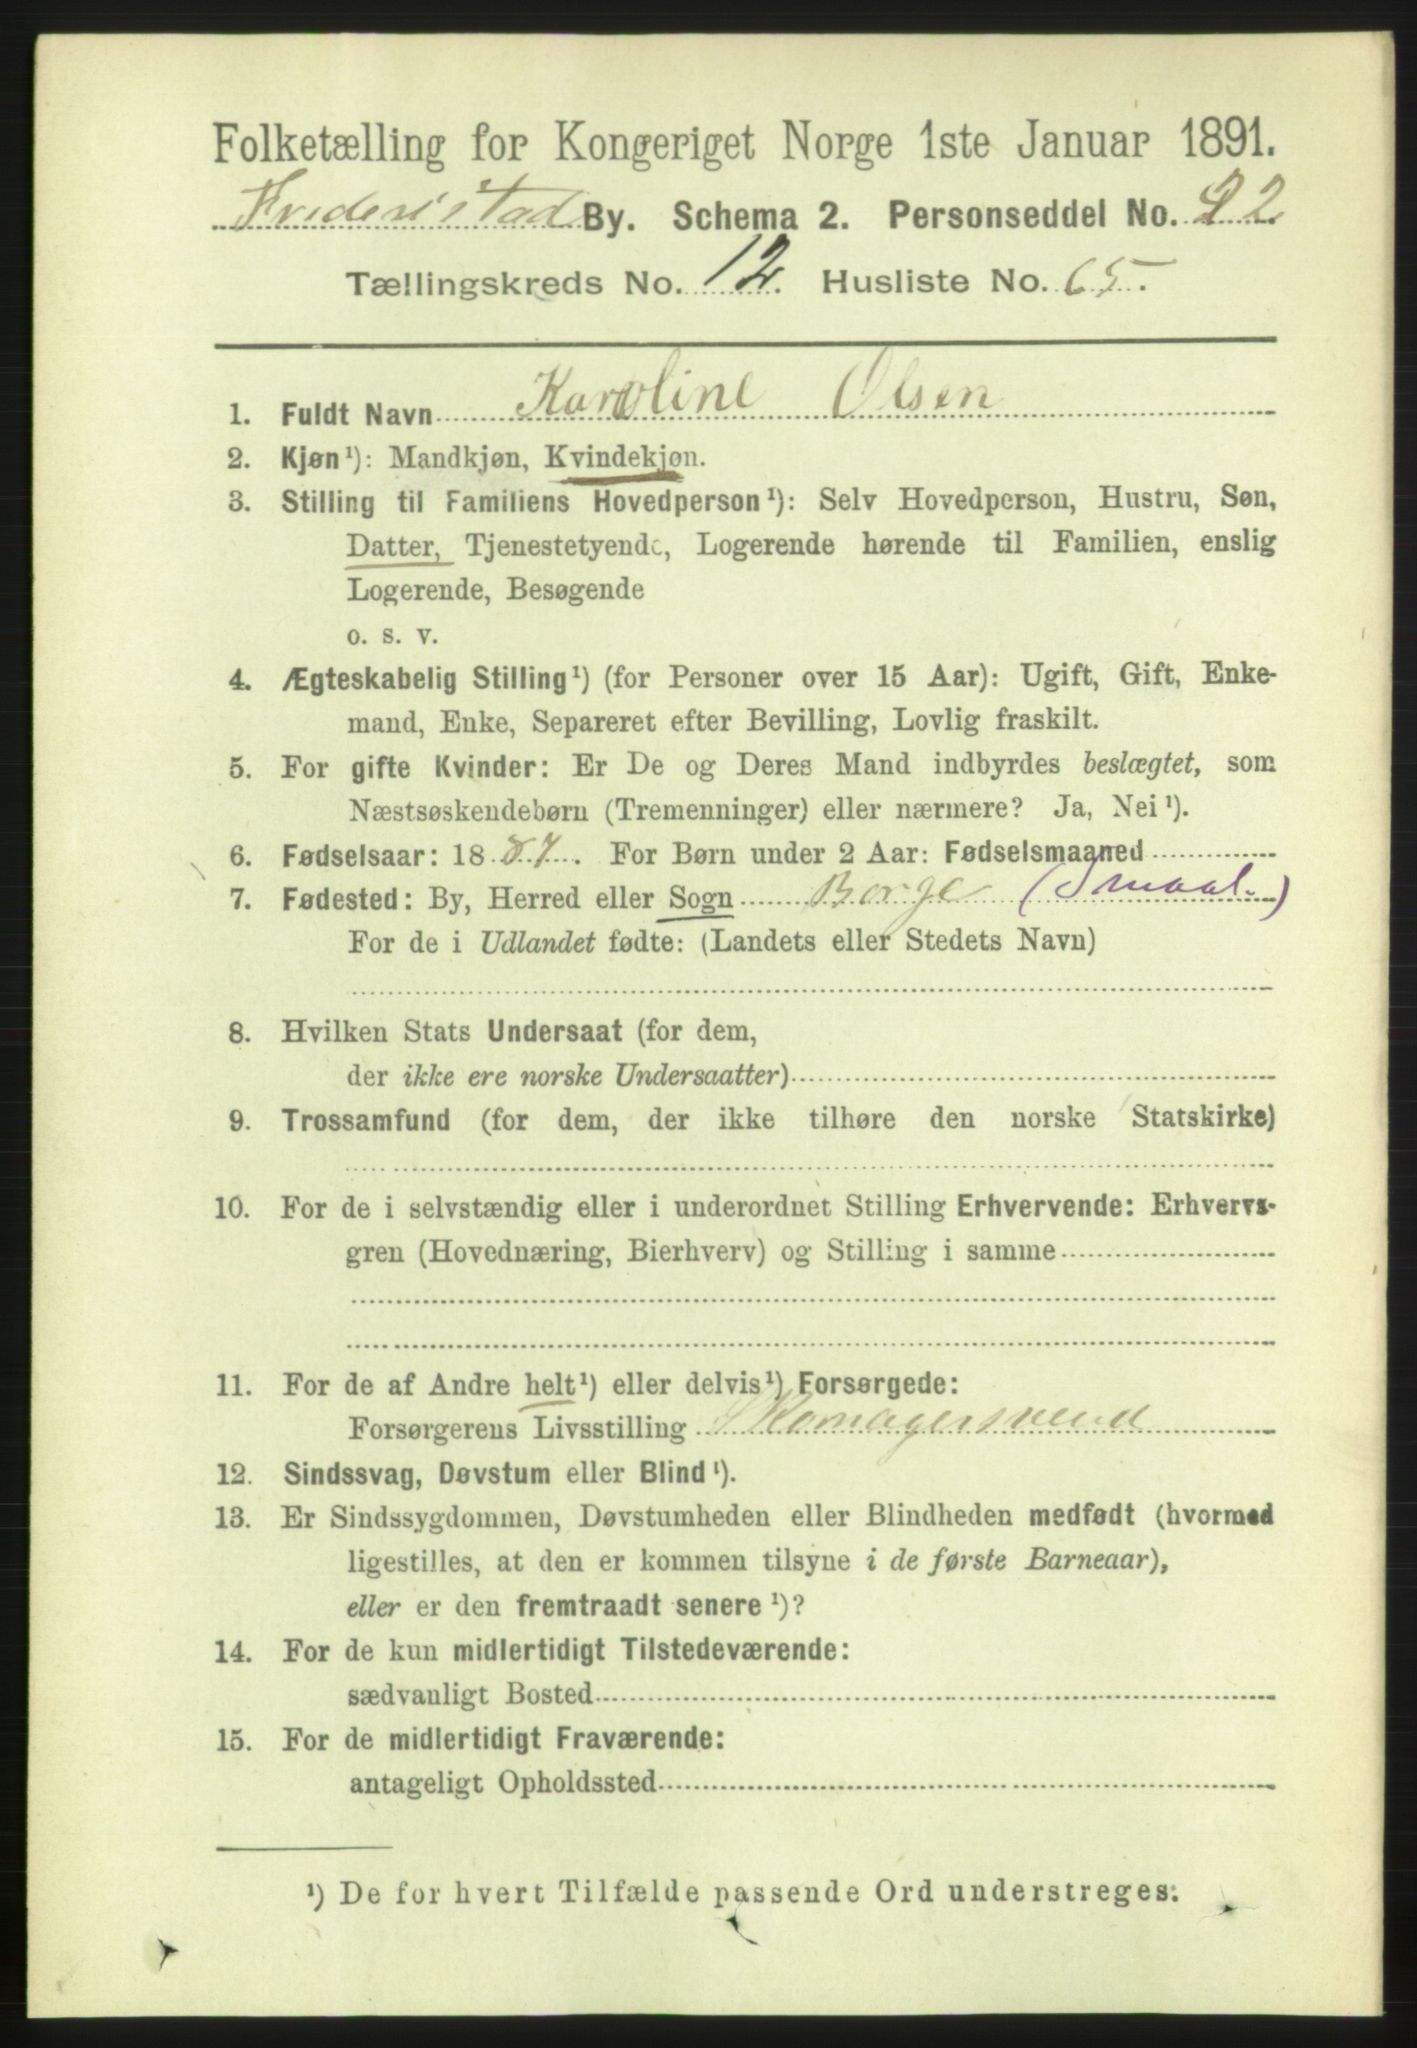 Folketælling for Kongeriget Norge 1ste Januar 1891.
Frederikstad By. Schema 2. Personseddel No. 22
Tællingskreds No. 12. Husliste No. 65.
1. Fuldt Navn Karoline Olsen
2. Kjøn¹): Mandkjøn, Kvindekjøn.
3. Stilling til Familiens Hovedperson¹): Selv Hovedperson, Hustru, Søn,
Datter, Tjenestetyende, Logerende hørende til Familien, enslig
Logerende, Besøgende
o. s. v.
4. Ægteskabelig Stilling¹) (for Personer over 15 Aar): Ugift, Gift, Enke-
mand, Enke, Separeret efter Bevilling, Lovlig fraskilt.
5. For gifte Kvinder: Er De og Deres Mand indbyrdes beslægtet, som
Næstsøskendebørn (Tremenninger) eller nærmere? Ja, Nei¹).
6. Fødselsaar: 1887. For Børn under 2 Aar: Fødselsmaaned
7. Fødested: By, Herred eller Sogn Borge (Smaal.)
For de i Udlandet fødte: (Landets eller Stedets Navn)
8. Hvilken Stats Undersaat (for dem,
der ikke ere norske Undersaatter)
9. Trossamfund (for dem, der ikke tilhøre den norske Statskirke)
10. For de i selvstændig eller i underordnet Stilling Erhvervende: Erhvervs-
gren (Hovednæring, Bierhverv) og Stilling i samme
11. For de af Andre helt¹) eller delvis¹) Forsørgede:
Forsørgerens Livsstilling Skomagersvend
12. Sindssvag, Døvstum eller Blind¹).
13. Er Sindssygdommen, Døvstumheden eller Blindheden medfødt (hvormed
ligestilles, at den er kommen tilsyne i de første Barneaar),
eller er den fremtraadt senere¹)?
14. For de kun midlertidigt Tilstedeværende:
sædvanligt Bosted
15. For de midlertidigt Fraværende:
antageligt Opholdssted
¹) De for hvert Tilfælde passende Ord understreges.